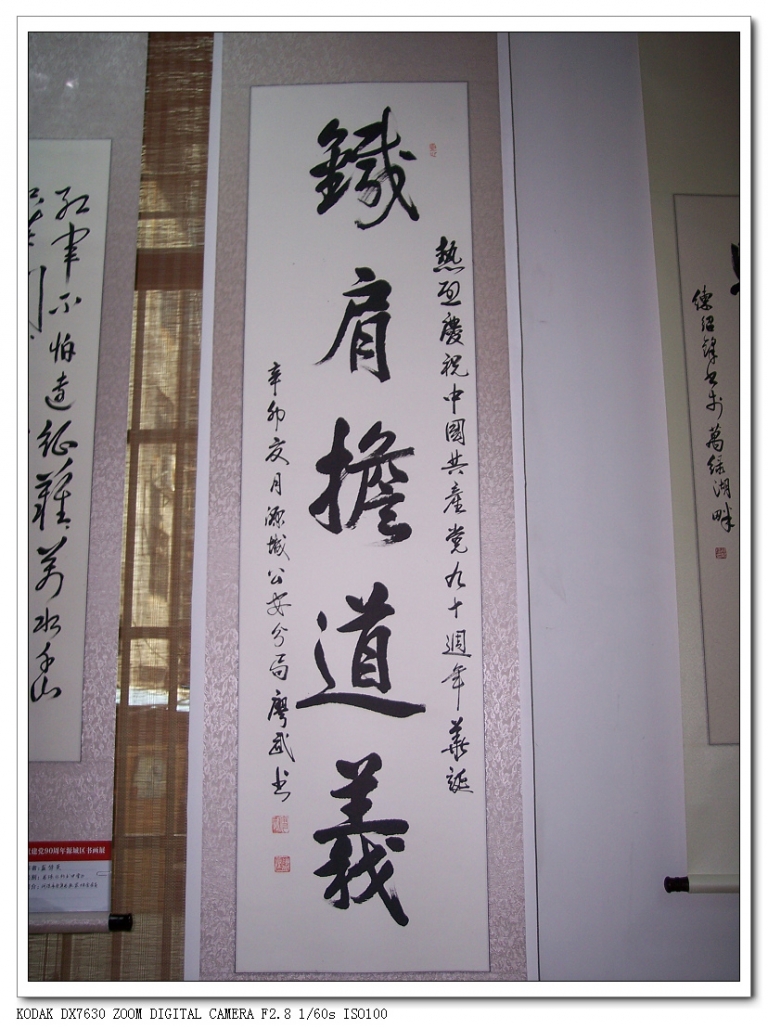 鐵肩擔道義
熱烈慶祝中國共産党九十週年華誕
辛卯夏月源城公安分局廖武书
红軍不怕遠征難萬水千山
德绍鋒书於萬绿湖畔
建党90周年源城区书画展
KODAK DX7630 ZOOM DIGITAL CAMERA F2.8 1/60s ISO100